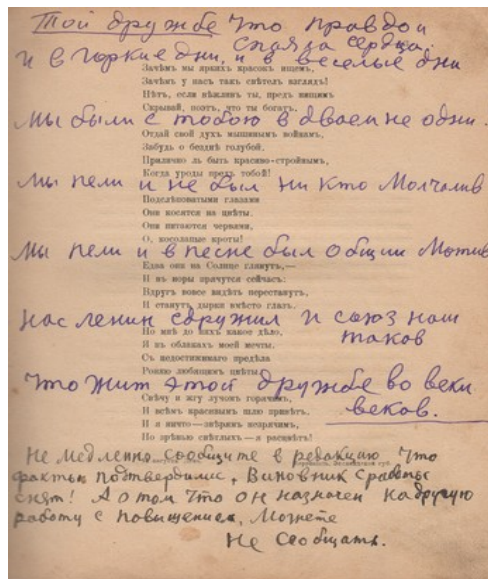 Той дружбе что правдой
спаяла сердца.
И в горкие дни, и в веселые дни
Зачѣмъ мы яркихъ красокъ ищемъ,
Зачѣмъ у насъ такъ свѣтелъ взглядъ!
Нѣтъ, если вѣжливъ ты, предъ нищимъ
Скрывай, поэтъ, что ты богатъ.
Мы были с тобою в двоем не одни.
Отдай свой духъ мышинымъ войнамъ,
Забудь о безднѣ голубой.
Прилично ль быть красиво-стройнымъ,
Когда уроды предъ тобой!
Мы пели и не был ни кто Молчалив
Подслѣповатыми глазами
Они косятся на цвѣты.
Они питаются червями,
О, косолапые кроты!
Мы пели и в песне был общии Мотив
Едва они на Солнце глянутъ,—
И въ норы прячутся сейчасъ:
Вдругъ вовсе видѣть перестанутъ,
И станутъ дырки вмѣсто глазъ.
Нас ленин сдружил и союз наш
таков
Но мнѣ до нихъ какое дѣло,
Я въ облакахъ моей мечты.
Съ недостижимаго предѣла
Роняю любящимъ цвѣты.
Что жит этой дружбе во веки
веков.
Свѣчу и жгу лучомъ горячимъ,
И всѣмъ красивымъ шлю привѣтъ.
И я ничто—звѣрямъ незрячимъ,
Но зрѣнью свѣтлыхъ—я расцвѣтъ!
Не медленно сообщите в редакцию что
факты подтвердилис, Виновник с работы
снят! А о том что он назначен на другую
работу с повышением, Можете
Не сообщать.